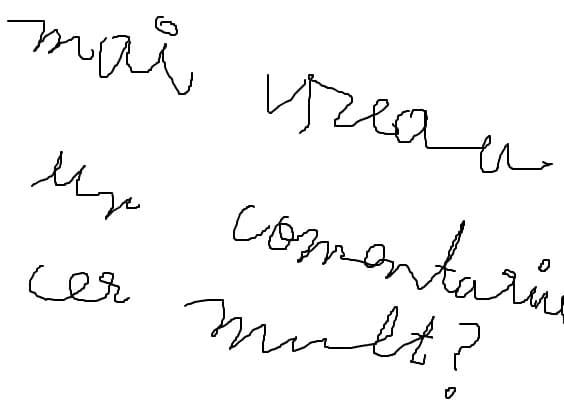 mai vreau
un comentariu
cer mult?